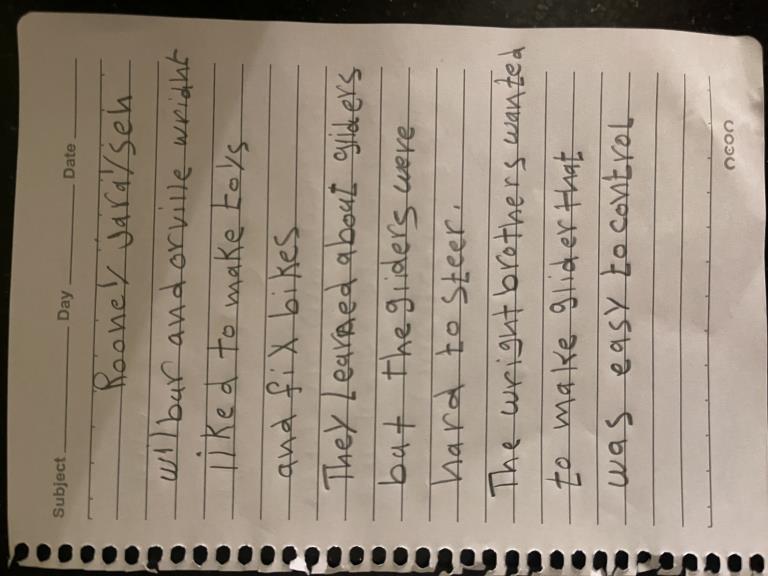 Subject Day Date
Rooney
wilbur and orville wright
liked to make toys
and fix bikes
They Learned about gliders
but the gliders were
hard to steer.
The wright brothers wanted
to make glider that
was easy to control
ncon